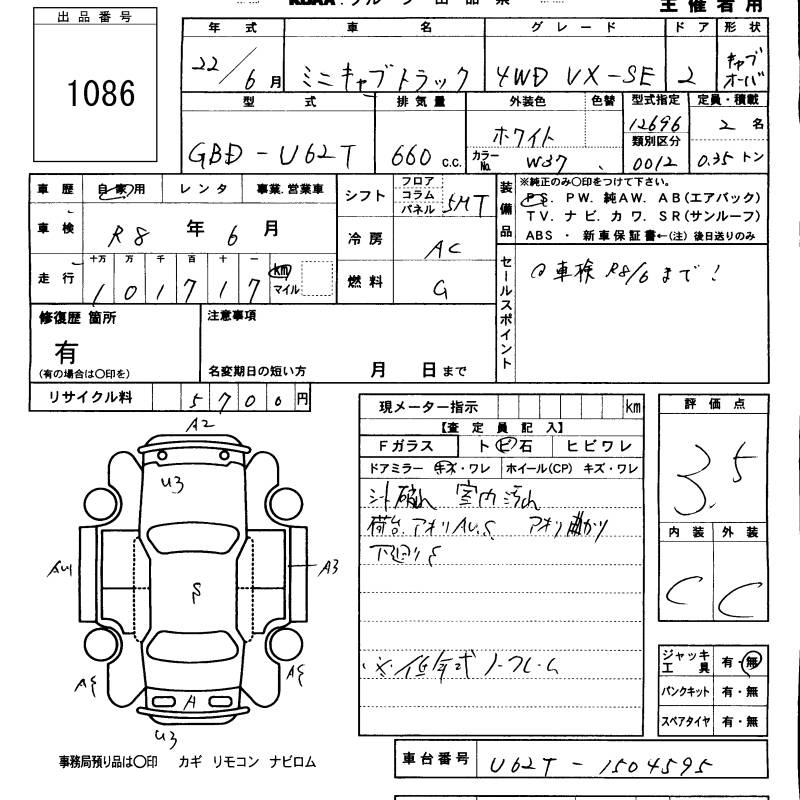 主催者用
出品番号
1086
年式 車名 グレード ドア 形状
22/6月 ミニキャブトラック 4WD VX-SE 2 キャブオーバ
型式 排気量 外装色 色替 型式指定 定員・積載
GBD-U62T 660 c.c. ホワイト 12696 2 名
カラーNo. W37 類別区分 0012 0.35 トン
車歴 自家用 レンタ 事業.営業車
車検 R8 年 6 月
走行 十万 万 千 百 十 一
101717 km マイル
シフト フロア コラム パネル 5MT
冷房 AC
燃料 G
装備品 ※純正のみ〇印をつけて下さい。
PS. PW. 純AW. AB(エアバック)
TV. ナビ. カワ. SR(サンルーフ)
ABS ・ 新車保証書←(注) 後日送りのみ
セールスポイント
車検 R8/6 まで!
修復歴 箇所
有
(有の場合は〇印を)
注意事項
名変期日の短い方 月 日まで
リサイクル料 5700円
現メーター指示 km
【査定員記入】
Fガラス ト ビ 石 ヒビワレ
ドアミラー キズ・ワレ ホイール(CP) キズ・ワレ
シート破れ 室内汚れ
荷台.アオリAU.S アオリ曲がり
下廻りS
評価点
3.5
内装 外装
C C
A2
U3
A3
S
A
U3
ジャッキ工具 有・無
パンクキット 有・無
スペアタイヤ 有・無
事務局預り品は〇印 カギ リモコン ナビロム
車台番号 U62T-1504595